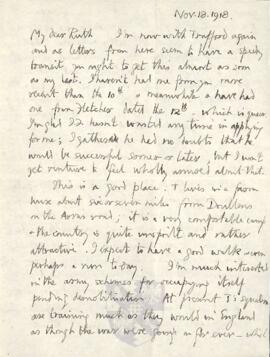 Nov. 18. 1918.
My dear Ruth I'm now with Trafford again
and as letters from here seem to have a speedy
transit, you ought to get this almost as soon
as my last. I haven't had one from you more
recent than the 10th & meanwhile I have had
one from Fletcher dated the 12th which
he hasn't wasted any time in applying
for me; I gather he had no doubts that he
would be successful sooner or later, but I won't
yet venture to feel wholly assured about that.
This is a good place. T lives in a
house about six or seven miles from Doullens
on the Arras road; it is a very comfortable camp
& the country is quite unspoilt and rather
attractive. I expect to have a good walk &
perhaps a run to-day. I'm much interested
in the army schemes for occupying itself
pending demobilisation. At present T's
are training much as they would in England
as though the war were going on for ever – which